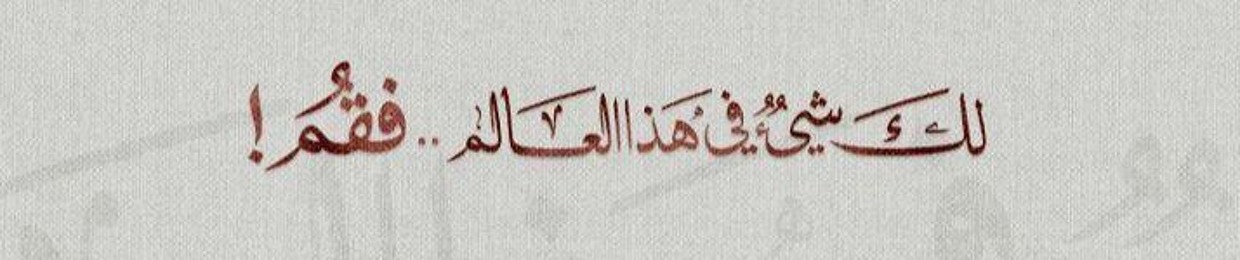 لك شيءٌ في هذا العالم .. فقُمَ !